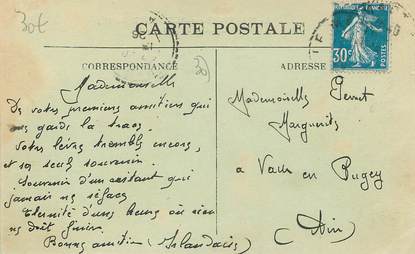 30€
CARTE POSTALE
CORRESPONDANCE
ADRESSE
30
30c
POSTES
Mademoiselle
De votre premiers amitiens qui
me garde la trace
Votre lèvre trembla encore,
et sa seule souvenir.
Souvenir d'un instant qui
jamais ne s'efface
Eternité d'une heure où rien
ne doit finir.
Bonne amitien (Islandais)
Mademoiselle Perret
Marguerite
a Vaux en
Bugey
(Ain)